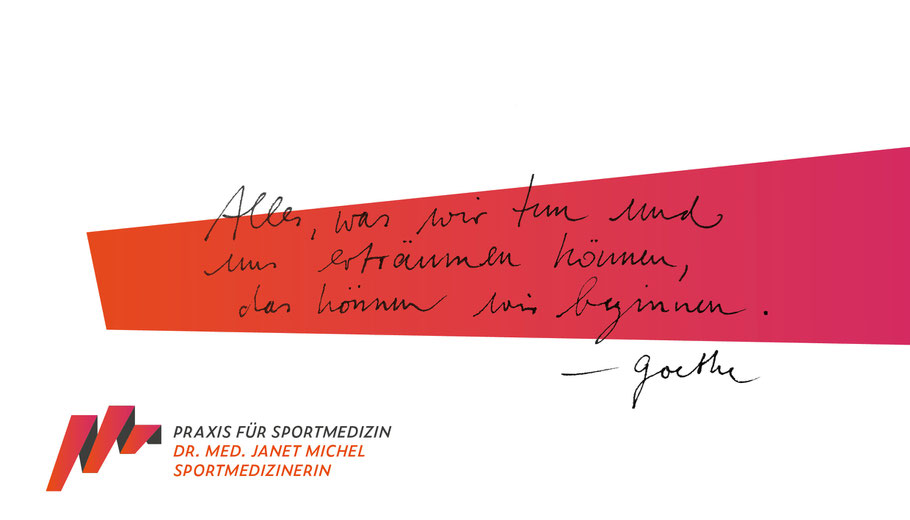 Alles, was wir tun und
uns erträumen können,
das können wir beginnen.
– Goethe
PRAXIS FÜR SPORTMEDIZIN
DR. MED. JANET MICHEL
SPORTMEDIZINERIN